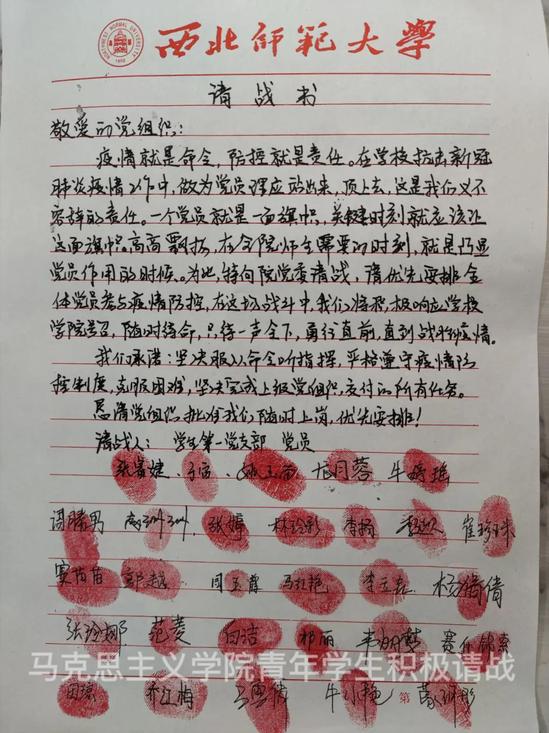 西北师范大学
NORTHWEST NORMAL UNIVERSITY
1902
请战书
敬爱的党组织：
疫情就是命令，防控就是责任。在学校抗击新冠
肺炎疫情工作中，做为党员理应站出来，顶上去，这是我们义不
容辞的责任。一个党员就是一面旗帜，关键时刻就应该让
这面旗帜高高飘扬，在全院师生需要的时刻，就是凸显
党员作用的时候。为此，特向院党委请战，请优先安排全
体党员参与疫情防控，在这场战斗中，我们将积极响应学校
学院号召，随时待命，只待一声令下，勇往直前，直到战胜疫情。
我们承诺：坚决服从命令听指挥，严格遵守疫情防
控制度，克服困难，坚决完成上级党组织交付的所有任务。
恳请党组织批准我们随时上岗，优先安排！
请战人：学生第一党支部 党员
张富婕 龙月蓉 牛媛艳
张婷 李杨 崔珍珠
窦苗苗 郭越 闫玉尊 马红艳 杨倩倩
张玲娜 范菱 白洁 祁丽 韦明梦
马克思主义学院青年学生积极请战
田瑗 乔红梅 牛小艳 第